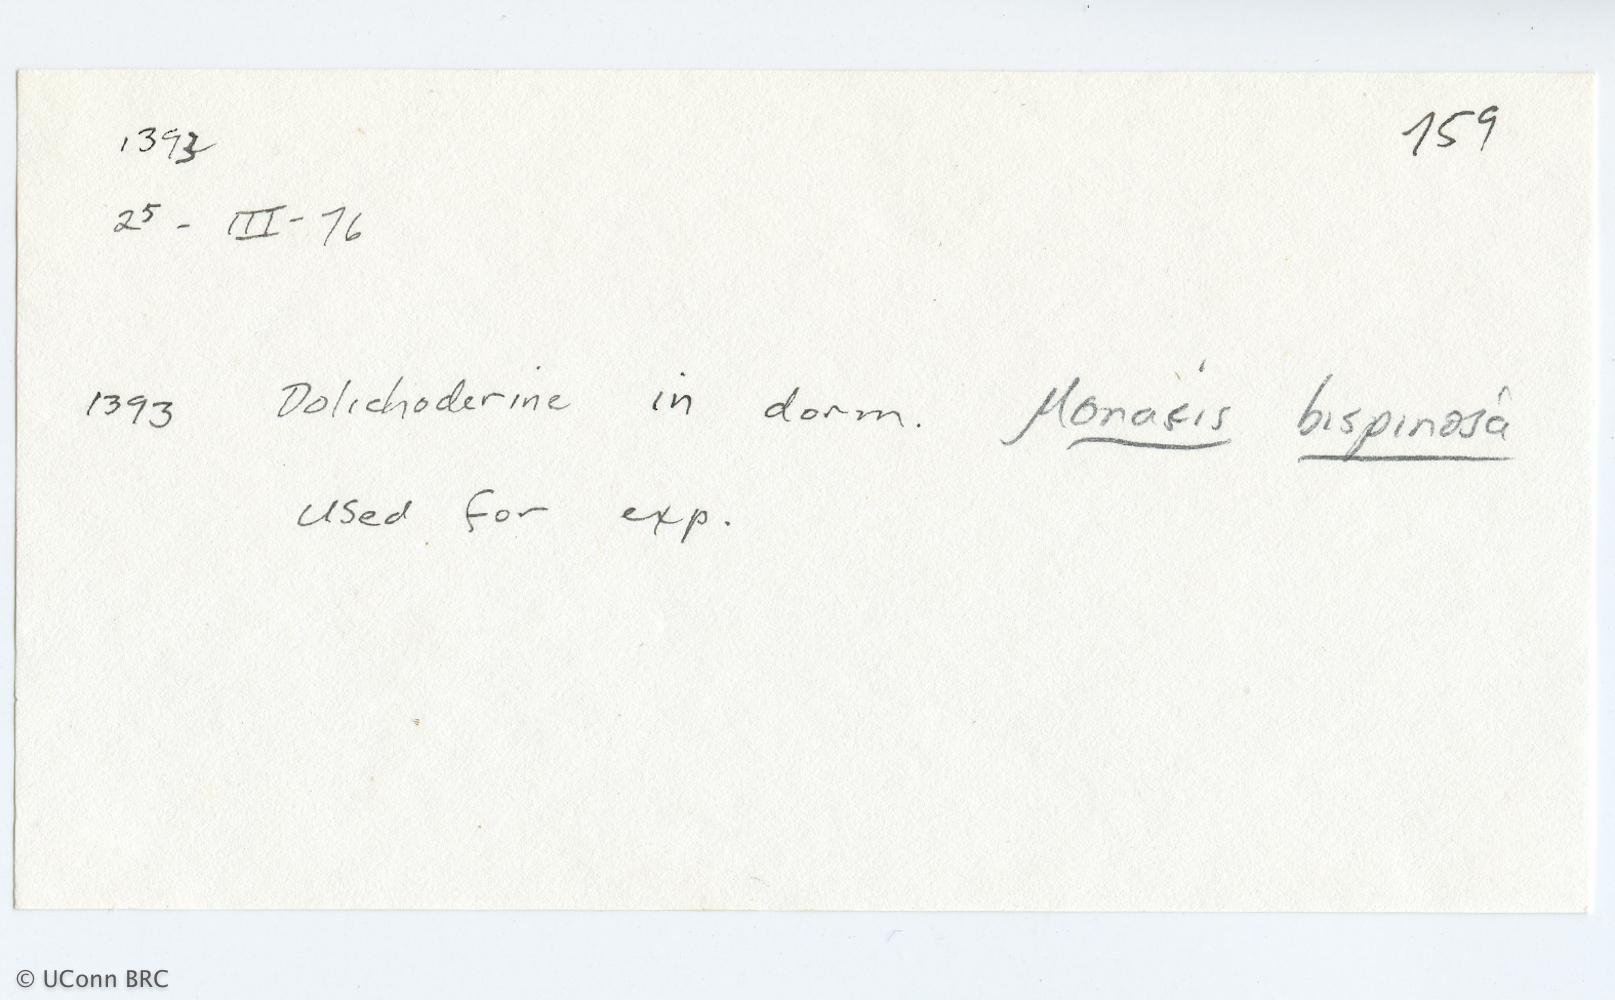 1393
159
25 - III - 76
1393 Dolichoderine in dorm. Monacis bispinosa
used for exp.
© UConn BRC